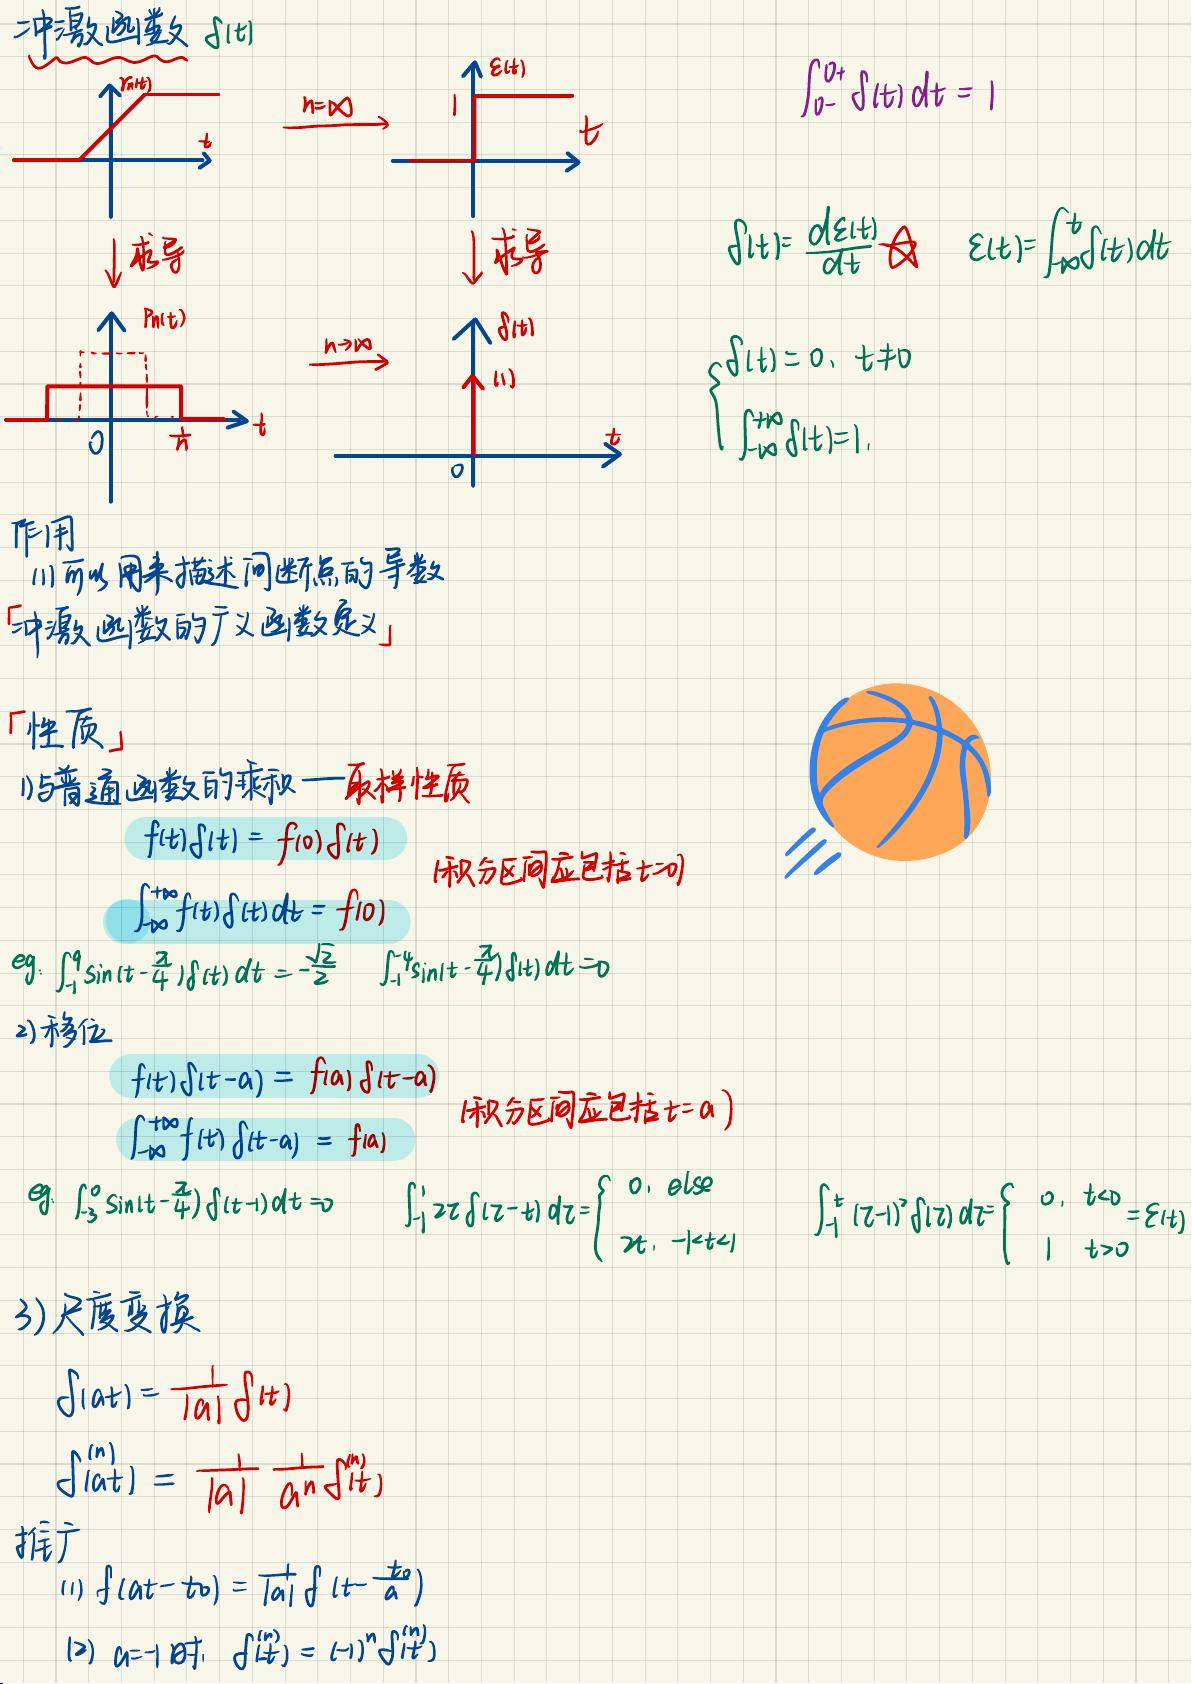 冲激函数 δ(t)
γn(t)
t
n=∞
ε(t)
1
t
∫₀₋⁰⁺ δ(t) dt = 1
↓求导
↓求导
δ(t) = dε(t)/dt ☆ ε(t) = ∫₋∞ᵗ δ(t) dt
Pn(t)
0
1/n
t
n→∞
δ(t)
(1)
0
t
{ δ(t) = 0, t≠0
∫₋∞⁺∞ δ(t) = 1.
作用
(1) 可以用来描述间断点的导数
「冲激函数的广义函数定义」
「性质」
1) 与普通函数的乘积 — 取样性质
f(t) δ(t) = f(0) δ(t)
(积分区间应包括t=0)
∫₋∞⁺∞ f(t) δ(t) dt = f(0)
eg. ∫₋₁⁹ sin(t-π/4) δ(t) dt = -√2/2 ∫₋₁⁻⁴ sin(t-π/4) δ(t) dt = 0
2) 移位
f(t) δ(t-a) = f(a) δ(t-a)
(积分区间应包括t=a)
∫₋∞⁺∞ f(t) δ(t-a) = f(a)
eg. ∫₋₃⁰ sin(t-π/4) δ(t-1) dt = 0 ∫₋₁¹ 2τ δ(τ-t) dτ = { 0, else
2t, -1<t<1
∫₋₁ᵗ (τ-1)² δ(τ) dτ = { 0, t<0
1 t>0 = ε(t)
3) 尺度变换
δ(at) = 1/|a| δ(t)
δ⁽ⁿ⁾(at) = 1/|a| 1/aⁿ δ⁽ⁿ⁾(t)
推广
(1) δ(at-t₀) = 1/|a| δ(t-t₀/a)
(2) a=-1时, δ⁽ⁿ⁾(t) = (-1)ⁿ δ⁽ⁿ⁾(t)